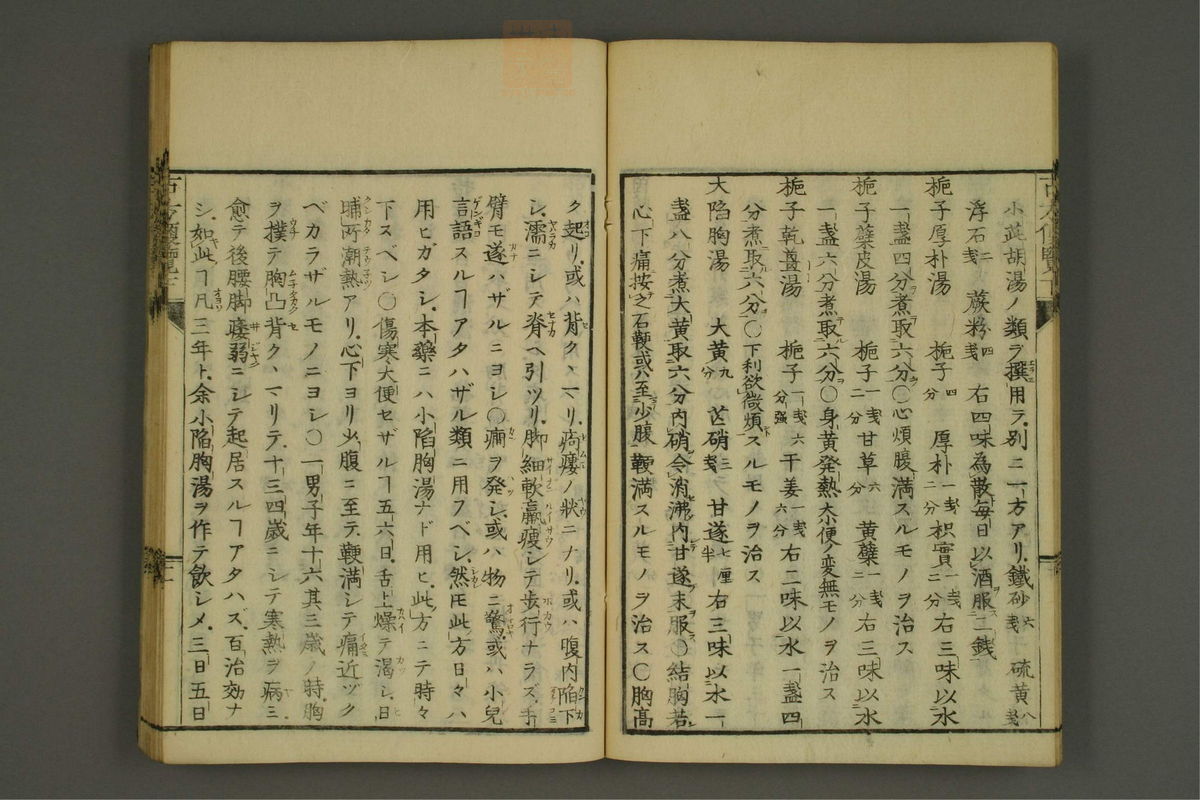 小茈胡湯ノ類ヲ撰用ヲ別ニ一方アリ鐵砂六戔硫黄八戔
浮石二戔 蕨粉四戔 右四味為散毎日以酒服二錢
梔子厚朴湯 梔子四分 厚朴一戔二分枳實一戔二分右三味以水
一盞四分煮取六分〇心煩腹満スルモノヲ治ス
梔子蘗皮湯 梔子一戔二分甘草六分 黄蘗一戔二分右三味以水
一盞六分煮取六分〇身黄発熱大小便ノ変無モノヲ治ス
梔子乾薑湯 梔子一戔六分强干姜一戔六分右二味以水一盞四
分煮取六分〇下利欲微煩スルモノヲ治ス
大陷胸湯 大黄九分 芒硝三戔 甘遂七厘半右三味以水一
盞八分煮大黄取六分内硝令消沸内甘遂末服〇結胸若
心下痛按之石鞕或ハ至少腹鞕満スルモノヲ治ス〇胸高
ク起リ或ハ背クヽマリ痀瘻ノ狀ニナリ或ハ腹内陷下
シ濡ニシテ脊ヘ引ツリ脚細軟羸瘦シテ歩行ナラズ手
臂モ遂ハザルニヨシ〇癎ヲ発シ或ハ物ニ驚或ハ小兒
言語スルヿアタハザル類ニ用フベシ然𪜈此方日々ハ
用ヒガタシ本藥ニハ小陷胸湯ナド用ヒ此方ニテ時々
下スベシ〇傷寒大便セザルヿ五六日舌上燥テ渴シ日
晡所潮熱アリ心下ヨリ少腹ニ至テ鞕満シテ痛近ヅク
ベカラザルモノニヨシ〇一男子年十六其三歳ノ時胸
ヲ撲テ胸凸背クヽマリテ十三四歳ニシテ寒熱ヲ病ミ
愈テ後腰脚痿弱ニシテ起居スルヿアタハズ百治効ナ
シ如此ヿ凡三年ト余小陷胸湯ヲ作テ飲シメ三日五日